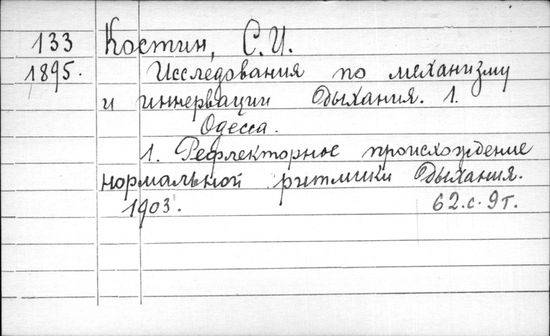 133 Костин, С.И.
1895. Исследования по механизму
и иннервации дыхания. 1.
Одесса.
1. Рефлекторное происхождение
нормальной ритмики дыхания.
1903. 62.с. 9т.